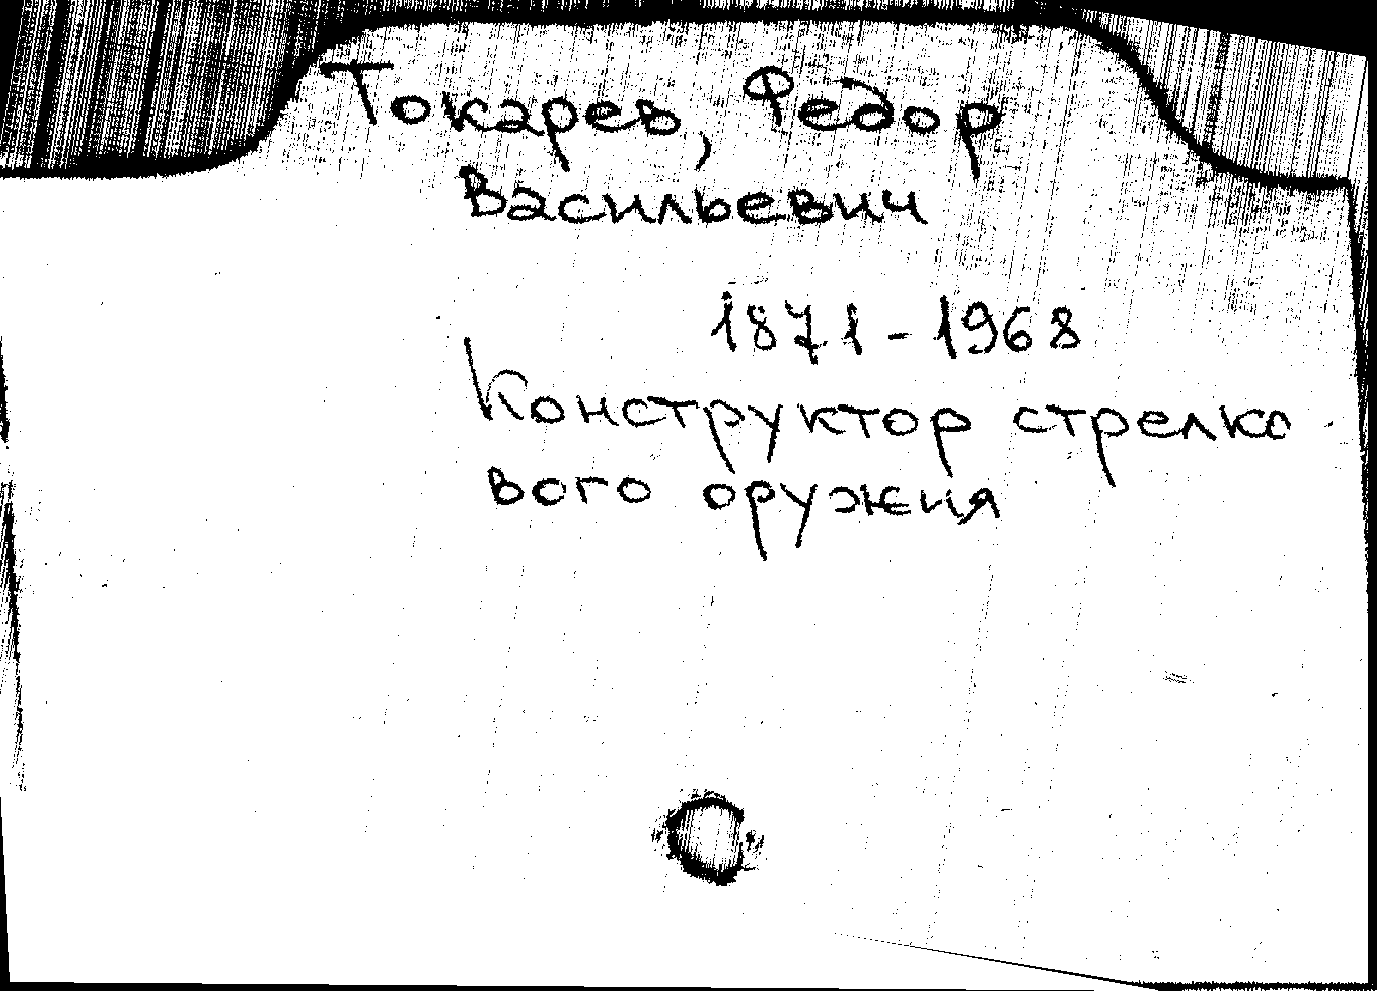 Токарев, Федор
Васильевич
1871-1968
Конструктор стрелко
вого оружия